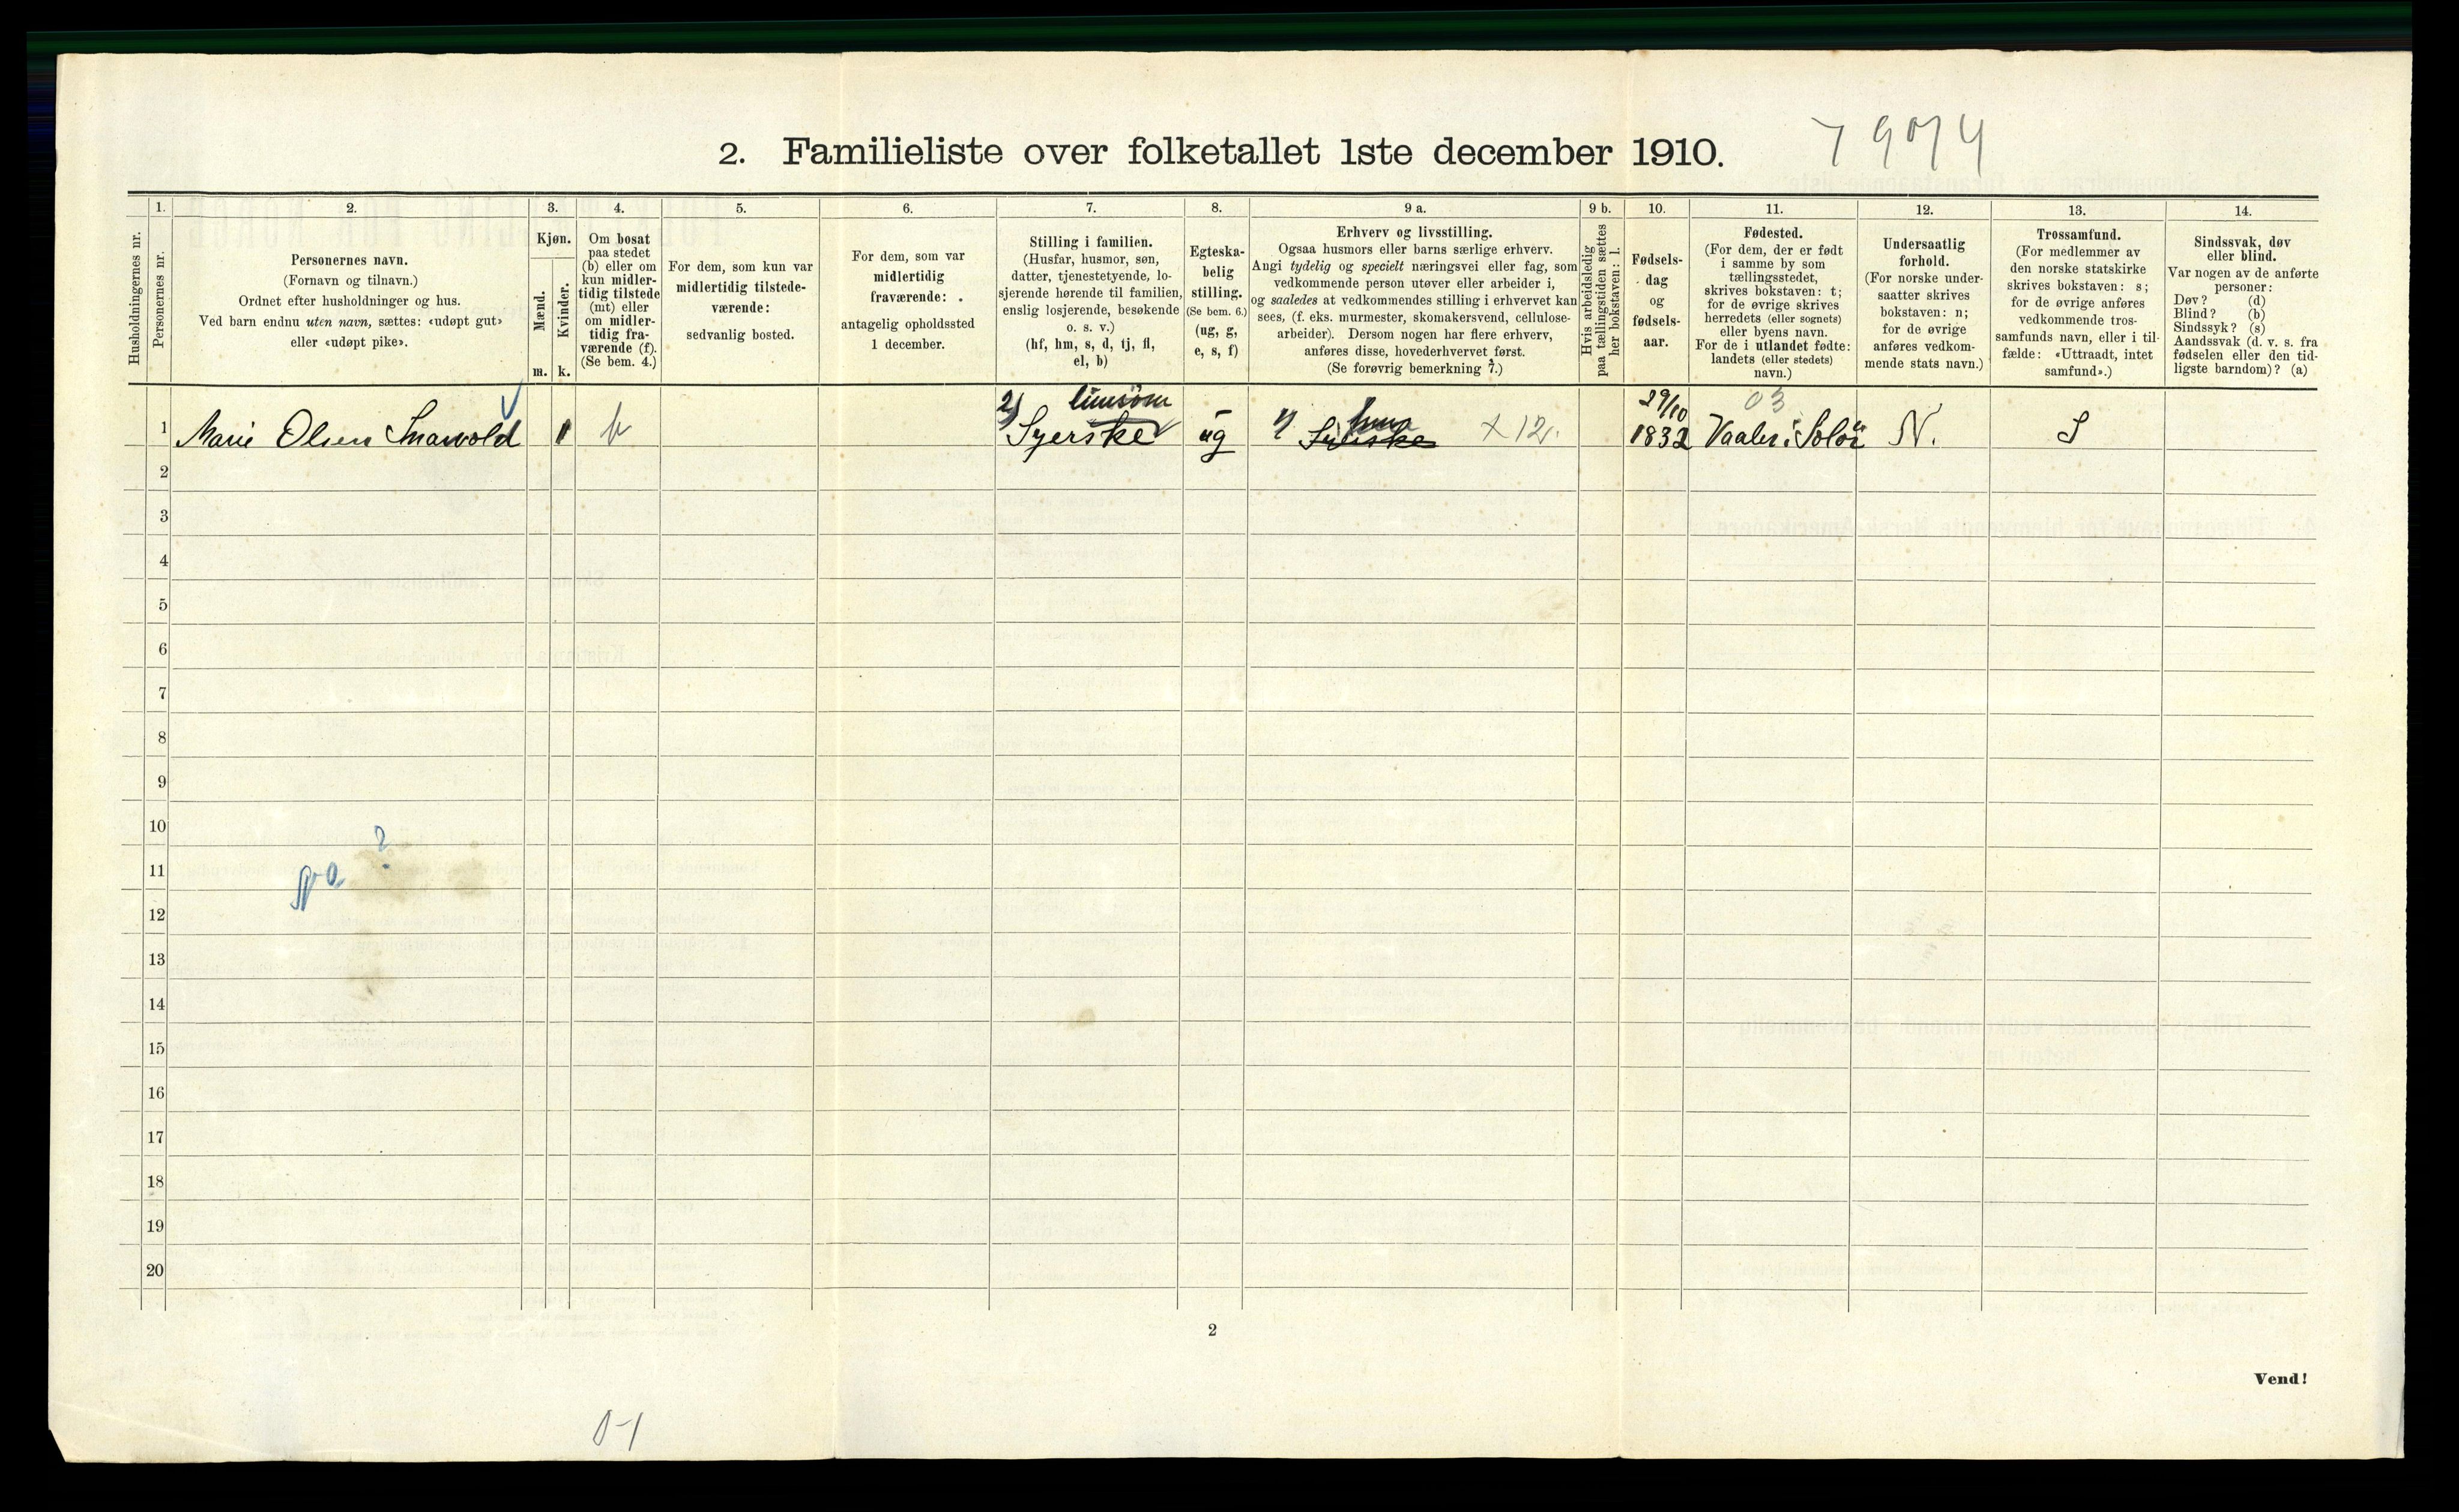 2. Familieliste over folketallet 1ste december 1910.
1.
2.
3.
4.
5.
6.
7.
8.
9 a.
9 b.
10.
11.
12.
13.
14.
Husholdningernes nr.
Personernes nr.
Personernes navn.
(Fornavn og tilnavn.)
Ordnet efter husholdninger og hus.
Ved barn endnu uten navn, sættes: «udøpt gut»
eller «udøpt pike».
Kjøn.
Mænd.
Kvinder.
m. k.
Om bosat
paa stedet
(b) eller om
kun midler-
tidig tilstede
(mt) eller
om midler-
tidig fra-
værende (f).
(Se bem. 4.)
For dem, som kun var
midlertidig tilstede-
værende:
sedvanlig bosted.
For dem, som var
midlertidig
fraværende:
antagelig opholdssted
1 december.
Stilling i familien.
(Husfar, husmor, søn,
datter, tjenestetyende, lo-
sjerende hørende til familien,
enslig losjerende, besøkende
o. s. v.)
(hf, hm, s, d, tj, fl,
el, b)
Egteska-
belig
stilling.
(Se bem. 6.)
(ug, g,
e, s, f)
Erhverv og livsstilling.
Ogsaa husmors eller barns særlige erhverv.
Angi tydelig og specielt næringsvei eller fag, som
vedkommende person utøver eller arbeider i,
og saaledes at vedkommendes stilling i erhvervet kan
sees, (f. eks. murmester, skomakersvend, cellulose-
arbeider). Dersom nogen har flere erhverv,
anføres disse, hovederhvervet først.
(Se forøvrig bemerkning 7.)
Hvis arbeidsledig
paa tællingstiden sættes
her bokstaven: l.
Fødsels-
dag
og
fødsels-
aar.
Fødested.
(For dem, der er født
i samme by som
tællingsstedet,
skrives bokstaven: t;
for de øvrige skrives
herredets (eller sognets)
eller byens navn.
For de i utlandet fødte:
landets (eller stedets)
navn.)
Undersaatlig
forhold.
(For norske under-
saatter skrives
bokstaven: n;
for de øvrige
anføres vedkom-
mende stats navn.)
Trossamfund.
(For medlemmer av
den norske statskirke
skrives bokstaven: s;
for de øvrige anføres
vedkommende tros-
samfunds navn, eller i til-
fælde: «Uttraadt, intet
samfund».)
Sindssvak, døv
eller blind.
Var nogen av de anførte
personer:
Døv? (d)
Blind? (b)
Sindssyk? (s)
Aandssvak (d. v. s. fra
fødselen eller den tid-
ligste barndom)? (a)
1 Marie Olsen 1 b 2) Syerske ug Syerske x 12. 29/10 1832 03 Vaaler i Solör N. S
2
3
4
5
6
7
8
9
10
11
12
13
14
15
16
17
18
19
20
2
Vend!
0-1